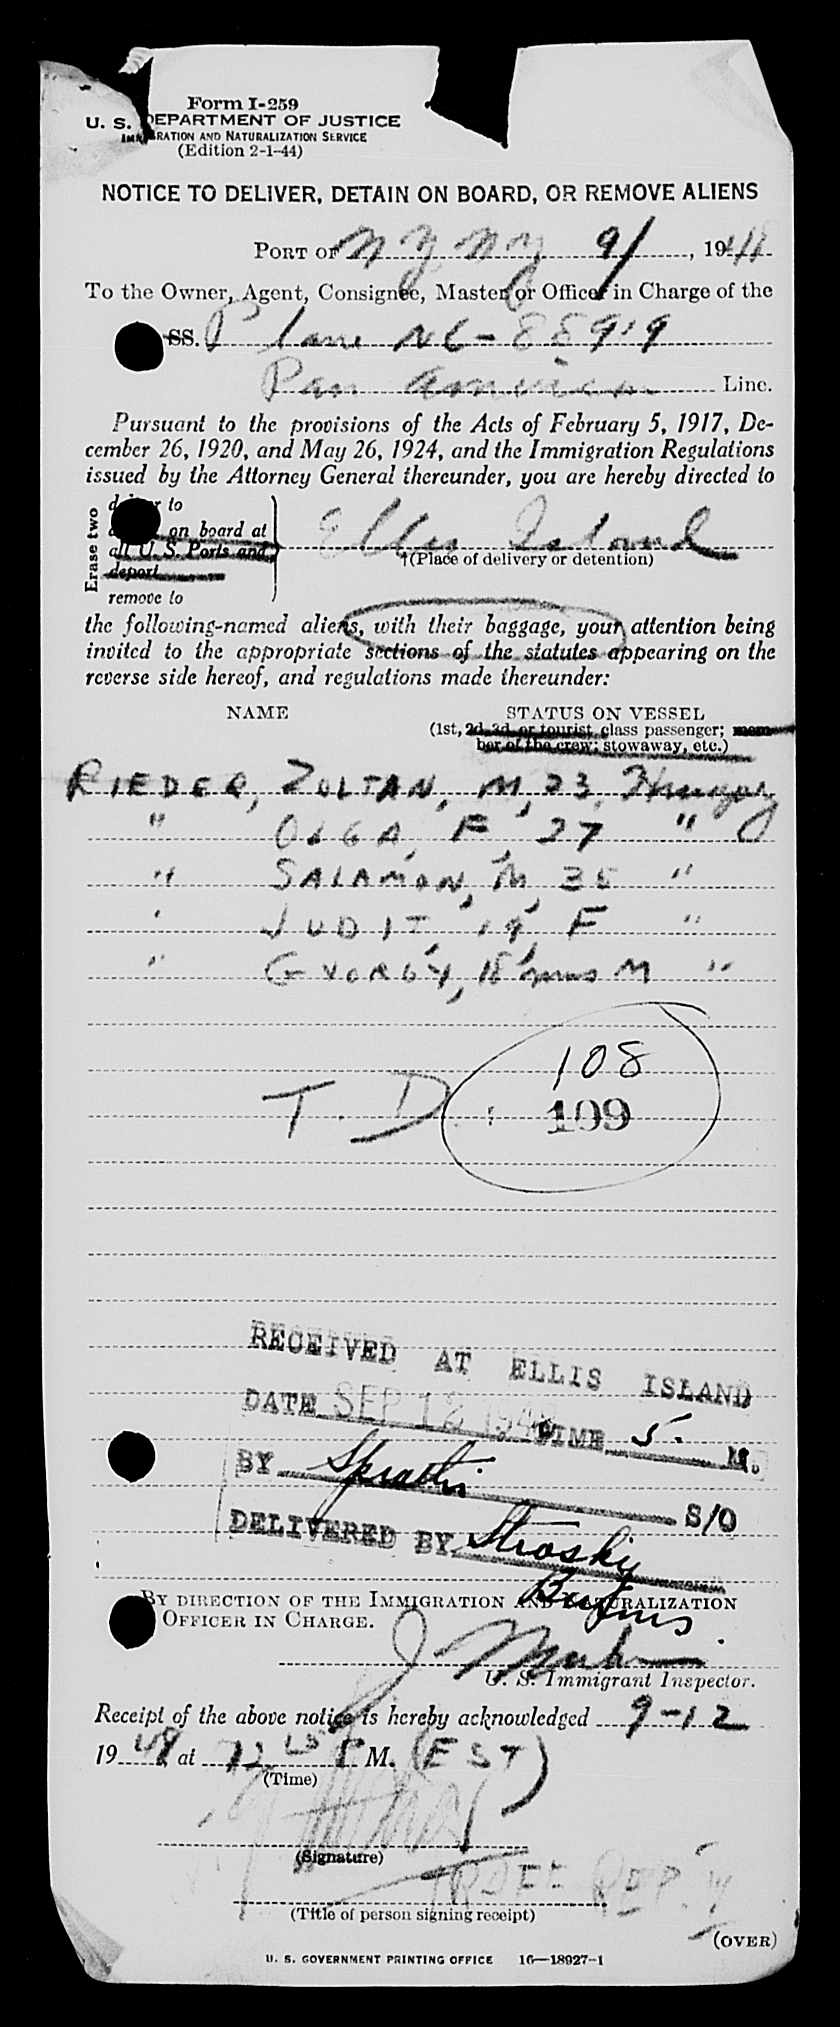 Form I-259
U. S. DEPARTMENT OF JUSTICE
IMMIGRATION AND NATURALIZATION SERVICE
(Edition 2-1-44)
NOTICE TO DELIVER, DETAIN ON BOARD, OR REMOVE ALIENS
PORT OF N Y N Y 9/ , 1948
To the Owner, Agent, Consignee, Master or Officer in Charge of the
SS. Plane NC-88919
Pan American Line.
Pursuant to the provisions of the Acts of February 5, 1917, De-
cember 26, 1920, and May 26, 1924, and the Immigration Regulations
issued by the Attorney General thereunder, you are hereby directed to
Erase two
to
on board at
all U. S. Ports and
deport
remove to
Ellis Island
(Place of delivery or detention)
the following-named aliens, with their baggage, your attention being
invited to the appropriate sections of the statutes appearing on the
reverse side hereof, and regulations made thereunder:
NAME STATUS ON VESSEL
(1st, 2d, 3d, or tourist class passenger; mem-
ber of the crew; stowaway, etc.)
RIEDER, ZOLTAN, M, 23, Hungary
" OLGA, F, 27 "
" SALAMON, M, 35 "
" JUDIT, 19, F "
" GYORGY, 18 mos M "
108
T. D. 109
RECEIVED AT ELLIS ISLAND
DATE SEP 12 1948 TIME 5- M.
BY S/O
DELIVERED BY Strosky
BY DIRECTION OF THE IMMIGRATION AND NATURALIZATION
OFFICER IN CHARGE.
U. S. Immigrant Inspector.
Receipt of the above notice is hereby acknowledged 9-12
1948 at M. (EST)
(Time)
(Signature)
REP.
(Title of person signing receipt)
(OVER)
U. S. GOVERNMENT PRINTING OFFICE 16—18927-1